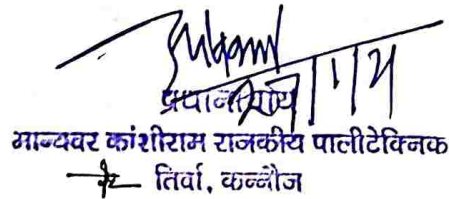 प्रधानाचार्य
मान्यवर कांशीराम राजकीय पालीटेक्निक
तिर्वा, कन्नौज